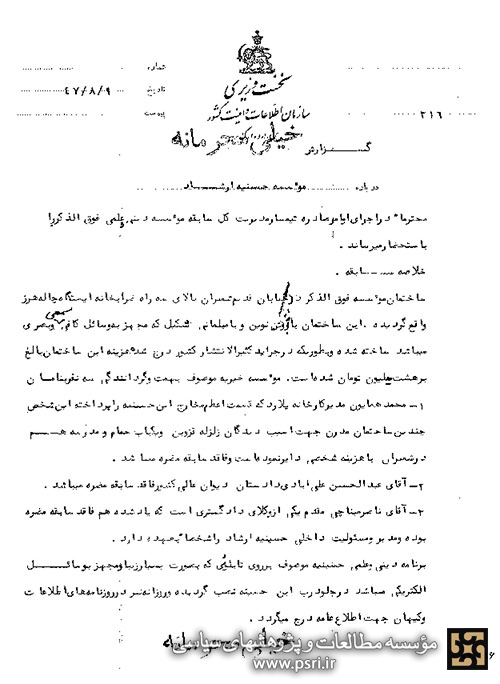 شماره
نخست وزیری
تاریخ ۴۷/۸/۹
سازمان اطلاعات و امنیت کشور
پیوست
۲۱۶
خیلی محرمانه
گزارش
درباره موسسه حسینیه ارشاد
محترماً در اجرای اوامر صادره تیمسار مدیریت کل سابقه موسسه دینی وعلمی فوق الذکر را
باستحضار میرساند.
خلاصه سابقه.
ساختمان موسسه فوق الذکر در خیابان قدیم شمیران بالای سه راه ضرابخانه ایستگاه چاله هرز
واقع گردیده. این ساختمان با نوین و با مبلمانی تشکیل که مجهز به وسائل کافی سمعی وبصری
میباشد ساخته شده وبطوریکه در جراید کثیرالانتشار کشور درج شد هزینه این ساختمان بالغ
برهشت ملیون تومان شده است. موسسه خیریه موصوف بهمت وگردانندگی سه نفر بنامهای
۱- محمد همایون مدیرکارخانه پلارد که قسمت اعظم مخارج این حسینیه را پرداخته این شخص
چندین ساختمان مدرن جهت آسیب دیدگان زلزله قزوین ویکباب حمام و مدرسه هم
در شمیران با هزینه شخصی دایر نموده است وفاقد سابقه مضره میباشد.
۲- آقای عبدالحسین علی آبادی دادستان دیوان عالی کشور فاقد سابقه مضره میباشد.
۳- آقای ناصر میناچی مقدم یکی ازوکلای دادگستری است که یاد شده هم فاقد سابقه مضره
بوده ومدیر ومسئولیت داخلی حسینیه ارشاد را شخصاً بعهده دارد.
برنامه دینی وعلمی حسینیه موصوف برروی تابلوئی که بصورت بسیار زیبا ومجهز بوسائل
الکتریکی میباشد در جلو درب این حسینیه نصب گردیده وروزانه نیز در روزنامه های اطلاعات
وکیهان جهت اطلاع عامه درج میگردد.
خیلی محرمانه
مؤسسه مطالعات و پژوهشهای سیاسی
www.psri.ir